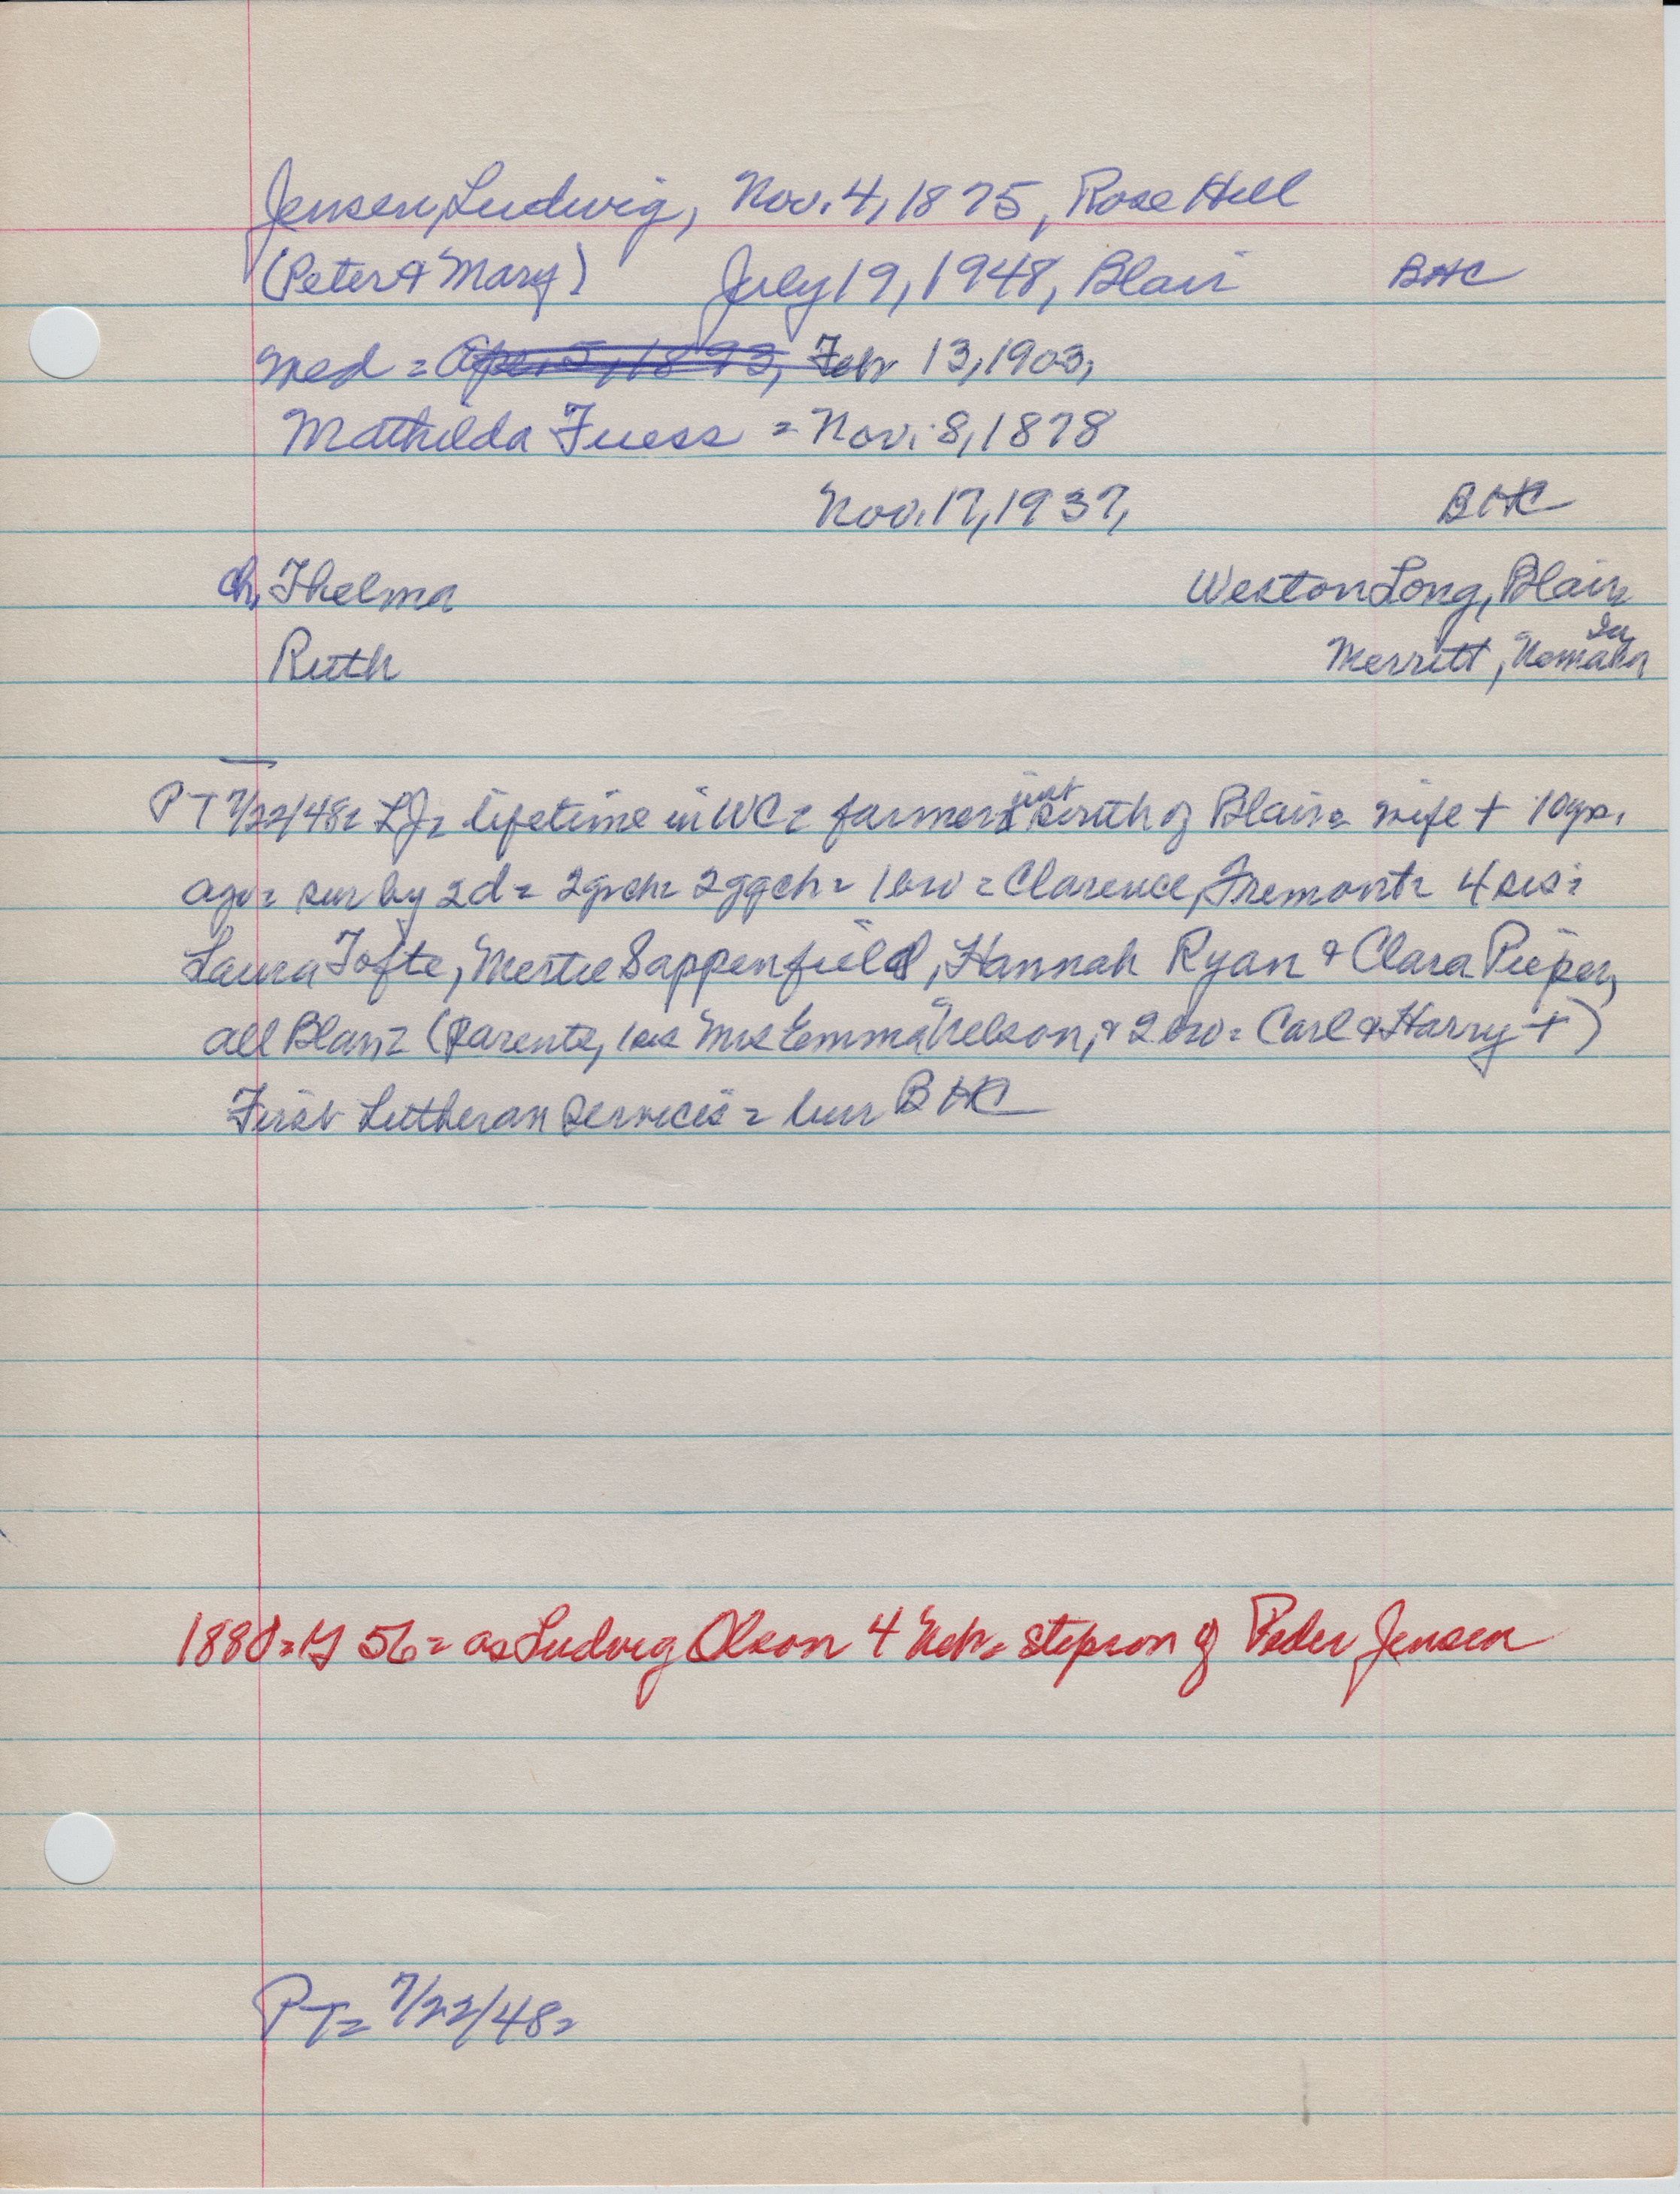 Jensen, Ludwig, Nov. 4, 1875, Rose Hill
(Peter & Mary) July 19, 1948, Blair BHC
med = Apr. 5, 1893, Febr 13, 1903,
Mathilda Fuess = Nov. 8, 1878
Nov. 17, 1937, BHC
ch, Thelma Weston Long, Blair
Ruth Merritt, Nemaha Ia
PT 7/22/48= LJ= lifetime in WC= farmer just south of Blair= wife + 10 yrs.
ago= sur by 2d= 2grch= 2ggch= 1bro= Clarence, Fremont= 4 sis=
Laura Tofte, Mertie Sappenfield, Hannah Ryan & Clara Pieper,
all Blair= (Parents, 1sis Mrs Emma Nelson, & 2 bro= Carl & Harry +)
First Lutheran services = bur BHC
1880= 56= as Ludvig Olson 4 Neb= stepson of Peder Jensen
PT= 7/22/48=